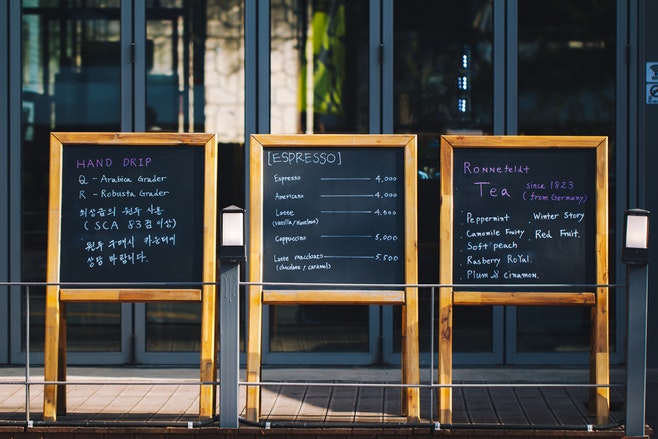 HAND DRIP
Q - Arabica Grader
R - Robusta Grader
최상급의 원두 사용
( SCA 83점 이상)
원두 구매시 카운터에
상담 바랍니다.
[ESPRESSO]
Espresso 4,000
Americano 4,000
Latte 4,500
(vanilla / Hazelnut)
Cappuccino 5,000
Latte macchiato 5,500
(chocolate / caramel)
Ronnefeldt
Tea since 1823
(from Germany)
Peppermint
Camomile Fruity
Soft peach
Rasberry RoYal.
Plum & cinnamon.
Winter Story
Red Fruit.